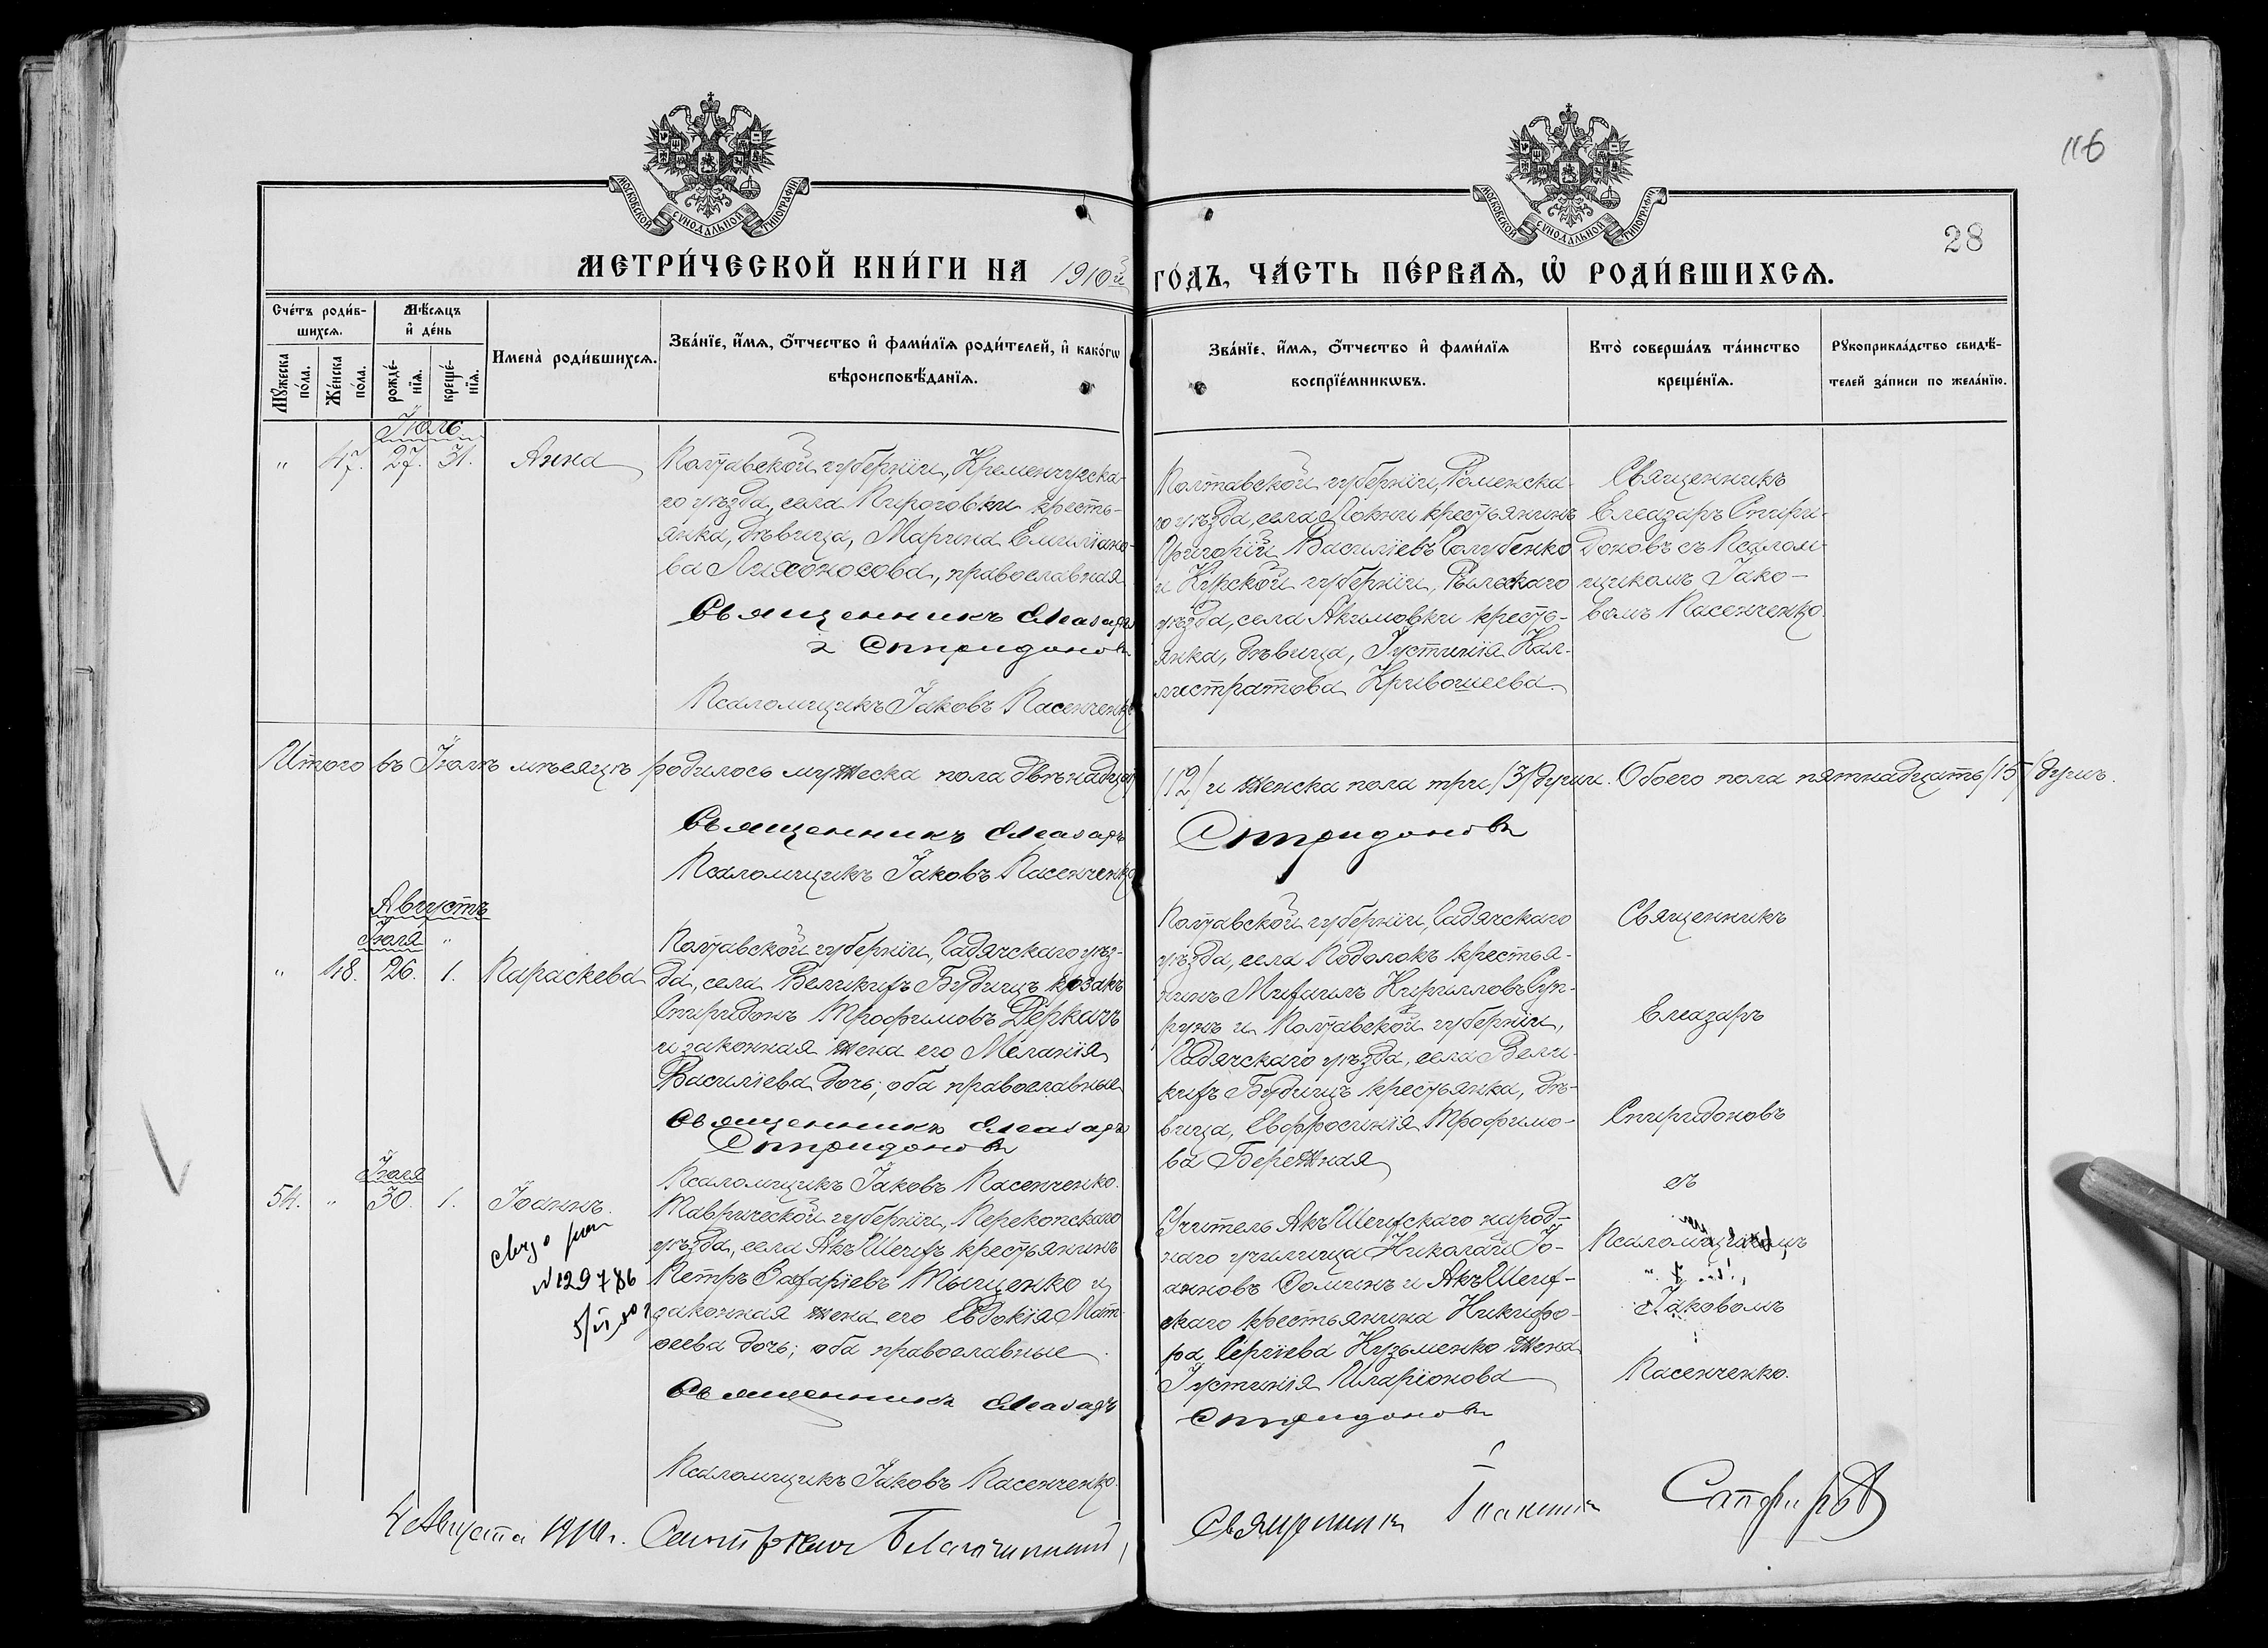 116
28
МОСКОВСКОЙ СѴНОДАЛЬНОЙ ТИПОГРАФІИ
МОСКОВСКОЙ СѴНОДАЛЬНОЙ ТИПОГРАФІИ
МЕТРИ́ЧЕСКОЙ КНИ́ГИ НА 1910й ГО́ДЪ, ЧА́СТЬ ПЕ́РВАѦ, Ѡ҆ РОДИ́ВШИХСѦ.
Сче́тъ роди́в-
шихсѧ.
Мꙋ́жеска
по́ла.
Же́нска
по́ла.
Мѣ́сѧцъ
и҆ де́нь
рожде́-
нїѧ.
креще́-
нїѧ.
Имена̀ роди́вшихсѧ.
Зва́нїе, и҆́мѧ, ѻ҆́тчество и҆ фами́лїѧ роди́телей, и҆ како́гѡ
вѣроисповѣ́данїѧ.
Зва́нїе, и҆́мѧ, ѻ҆́тчество и҆ фами́лїѧ
воспрїе́мникѡвъ.
Кто̀ соверша́лъ та́инство
креще́нїѧ.
Рꙋкоприкла́дство свидѣ́-
телей за́писи по жела́нїю.
Іюль
" 47. 27. 31. Анна
Полтавской губерніи, Кременчугска-
го уѣзда, села Пироговки кресть-
янка, дѣвица, Марина Емиліано-
ва Лихоносова, православная
Священникъ Елеазаръ
Спиридоновъ
Псаломщикъ Іаковъ Пасенченко
Полтавской губерніи, Роменска-
го уѣзда, села Локни крестьянинъ
Григорій Василіевъ Голубенко
и Курской губерніи, Рыльскаго
уѣзда, села Акимовки кресть-
янка, дѣвица, Іустинія Кал-
листратова Кривошеева.
Священникъ
Елеазаръ Спири-
доновъ съ Псалом-
щикомъ Іако-
вомъ Пасенченко.
Итого въ Іюлѣ мѣсяцѣ родилось мужеска пола двѣнадцать /12/ и женска пола три /3/ души. Обоего пола пятнадцать /15/ душъ.
Священникъ Елеазаръ Спиридоновъ
Псаломщикъ Іаковъ Пасенченко
Августъ
Іюля "
" 48. 26. 1. Параскева
Полтавской губерніи, Гадячскаго уѣз-
да, села Великихъ Будищъ козакъ
Спиридонъ Трофимовъ Деркачъ
и законная жена его Меланія
Василіева дочь; оба православные
Священникъ Елеазаръ
Спиридоновъ
Псаломщикъ Іаковъ Пасенченко.
Полтавской губерніи, Гадячскаго
уѣзда, села Подолокъ крестья-
нинъ Михаилъ Кирилловъ Суп-
рунъ и Полтавской губерніи,
Гадячскаго уѣзда, села Вели-
кихъ Будищъ крестьянка, дѣ-
вица, Евфросинія Трофимо-
ва Бережная
Священникъ
Елеазаръ
Спиридоновъ
съ
Псаломщикомъ
Іаковомъ
Пасенченко.
Іюля
54. " 30. 1. Іоаннъ.
№129786
Таврической губерніи, Перекопскаго
уѣзда, села Акъ Шеихъ крестьянинъ
Петръ Захаріевъ Тыщенко и
законная жена его Евдокія Мат-
ѳеева дочь; оба православные
Священникъ Елеазаръ
Псаломщикъ Іаковъ Пасенченко.
Учитель Акъ Шеихскаго народ-
наго училища Николай Іо-
анновъ Ѳоминъ и Акъ Шеих-
скаго крестьянина Никифо-
ра Сергіева Кузьменко жена
Іустинія Иларіонова
Спиридоновъ
4 Августа 1910 г. Благочинный, Священникъ